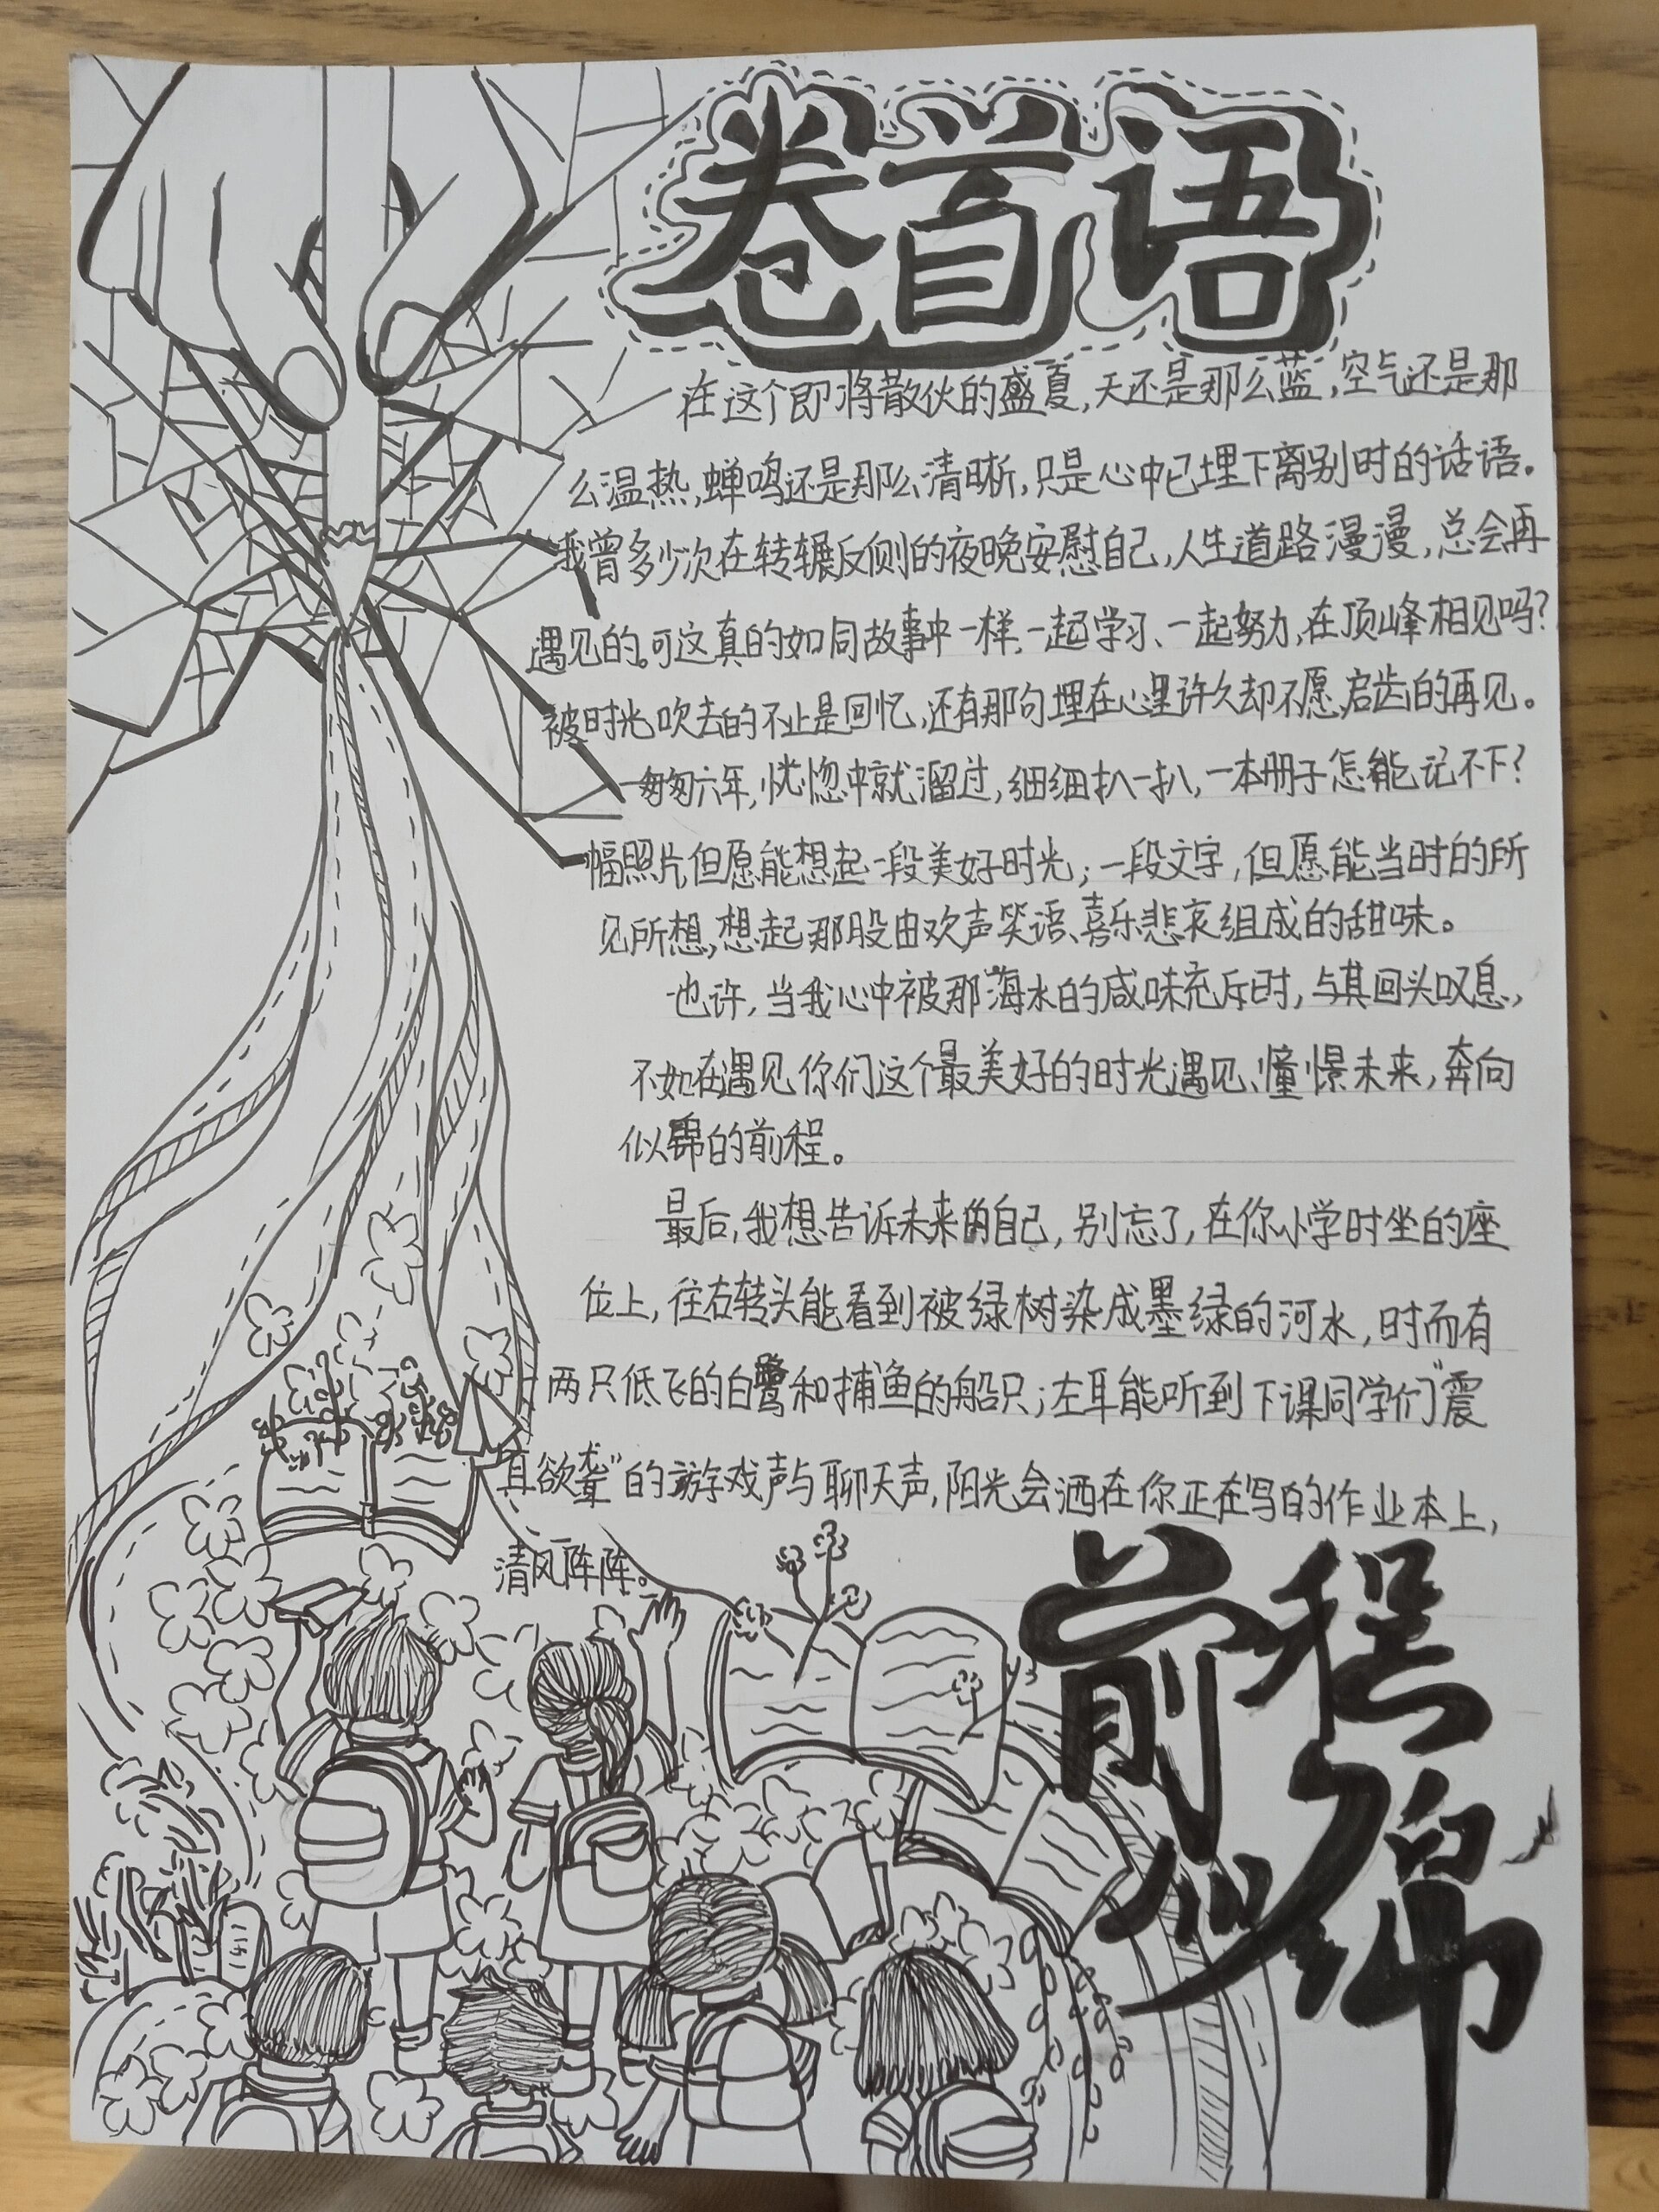 卷首语
在这个即将散伙的盛夏,天还是那么蓝,空气还是那
么温热,蝉鸣还是那么清晰,只是心中已埋下离别时的话语。
我曾多少次在转辗反侧的夜晚安慰自己,人生道路漫漫,总会再
遇见的。可这真的如同故事中一样,一起学习、一起努力,在顶峰相见吗?
被时光吹去的不止是回忆,还有那句埋在心里许久却不愿启齿的再见。
匆匆六年,恍惚中就溜过,细细扒一扒,一本册子怎能记不下?
一幅照片,但愿能想起一段美好时光;一段文字,但愿能当时的所
见所想,想起那股由欢声笑语、喜乐悲哀组成的甜味。
也许,当我心中被那海水的咸味充斥时,与其回头叹息,
不如在遇见你们这个最美好的时光遇见、憧憬未来,奔向
似锦的前程。
最后,我想告诉未来的自己,别忘了,在你小学时坐的座
位上,往右转头能看到被绿树染成墨绿的河水,时而有
两只低飞的白鹭和捕鱼的船只;左耳能听到下课同学们“震
耳欲聋”的游戏声与聊天声,阳光会洒在你正在写的作业本上,
清风阵阵。
前程
似锦